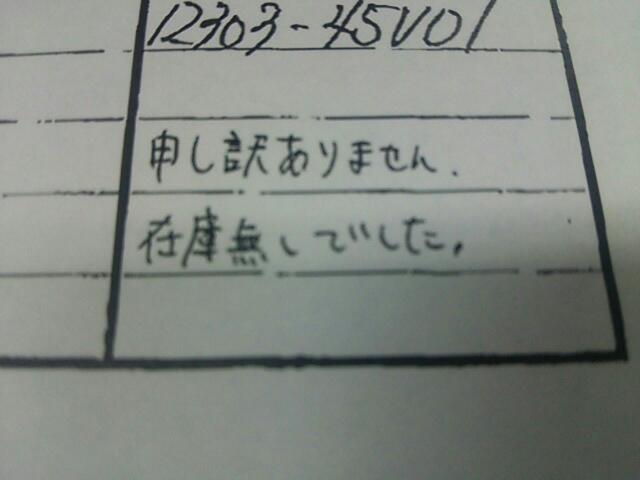 12303-45V01
申し訳ありません.
在庫無しでした,